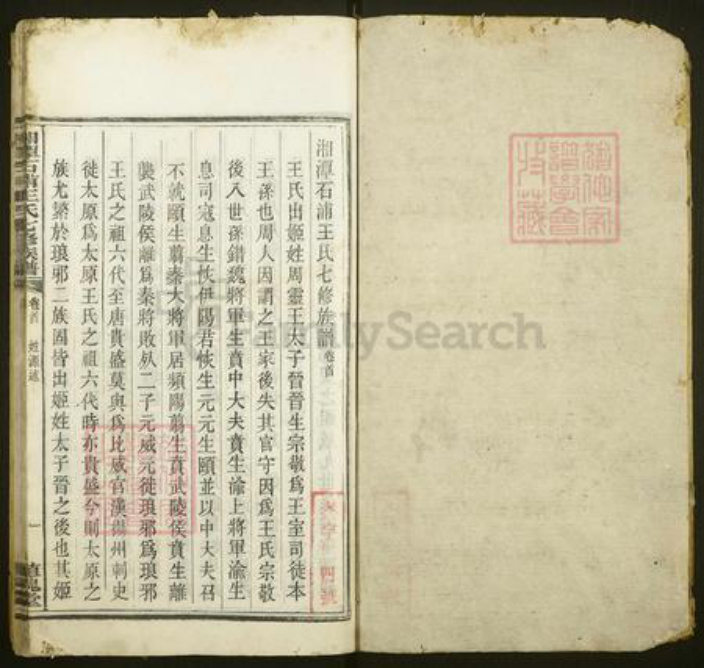 湘潭石浦王氏七修族譜卷首
王氏出姬姓周靈王太子晉晉生宗敬爲王室司徒本
王孫也周人因謂之王家後失其官守因爲王氏宗敬
後八世孫錯魏將軍生賁中大夫賁生渝上將軍渝生
息司寇息生恢伊陽君恢生元元生頤並以中大夫召
不就頤生翦秦大將軍居頻陽翦生賁武陵侯賁生離
襲武陵侯離爲秦將敗死二子元威元徙琅邪爲琅邪
王氏之祖六代至唐貴盛莫與爲比威官漢揚州刺史
徙太原爲太原王氏之祖六代時亦貴盛今則太原之
族尤繁於琅邪二族固皆出姬姓太子晉之後也其姬
湘潭石浦王氏七修族譜
卷首
姓源述
一
FamilySearch